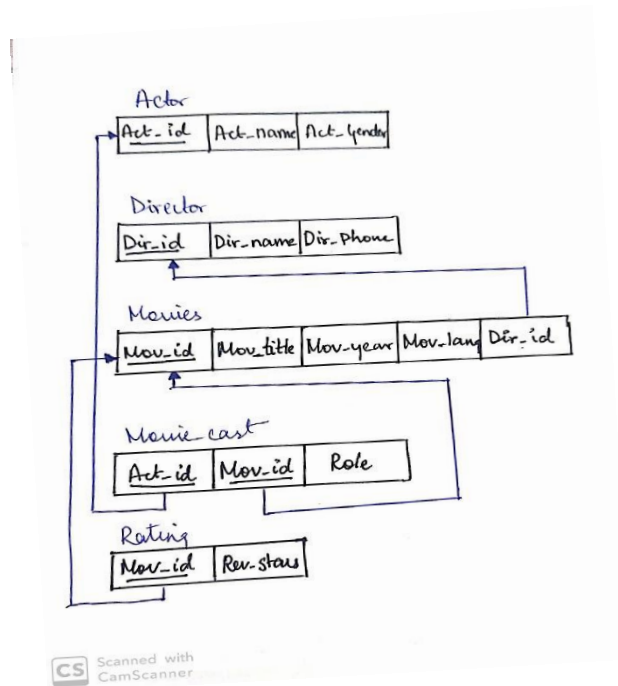 Actor
Act_id Act_name Act_Gender
Director
Dir_id Dir_name Dir_Phone
Movies
Mov_id Mov_title Mov_year Mov_lang Dir_id
Movie_cast
Act_id Mov_id Role
Rating
Mov_id Rev_stars
CS Scanned with
CamScanner